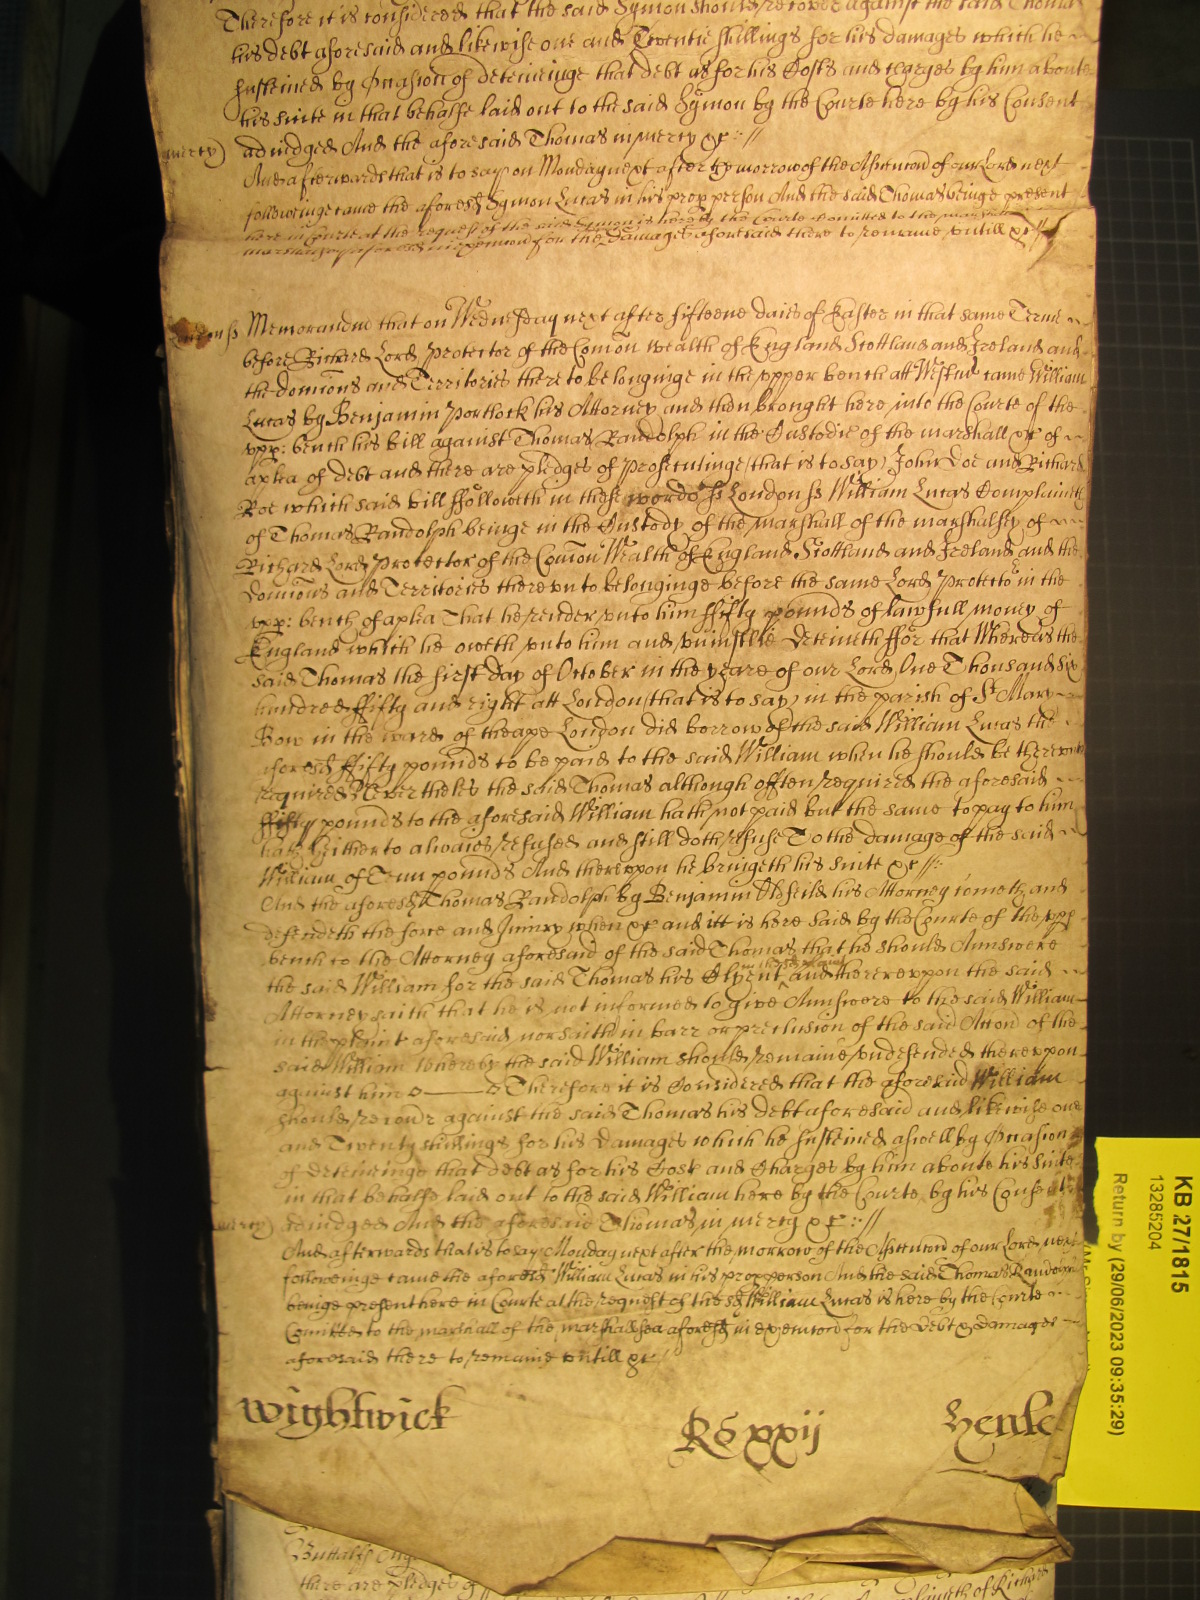 Therefore it is considered that the said Symon should recover against the said Thomas
his debt aforesaid and likewise one and Twentie shillings for his damages which he
susteined by Occasion of deteineinge that debt as for his Costs and charges by him aboute
his suite in that behalfe laid out to the said Symon by the Courte here by his Consent
mercy) adiudged And the aforesaid Thomas in mercy &c://
And afterwards that is to say on Monday next after the morrow of the Ascencion of our Lord next
followeinge came the aforesd Symon Lucas in his prop person And the said Thomas beinge present
here in Courte at the request of the said Symon is here by the Courte Comitted to the marshall
damages aforesaid there to remaine untill &c //
London ss Memorand that on Wednesday next after fifteene daies of Easter in that same Terme
before Richard Lord Protector of the Comon wealth of England Scotland and Ireland and
the dominions and Territories there to belonginge in the upper bench att Westm came William
Lucas by Benjamin Portlock his Attorney and then brought here into the Courte of the
upp: bench his bill against Thomas Randolph in the Custodie of the marshall &c of
a plea of debt and there are pledges of prosecutinge (that is to say) John Doe and Richard
Roe which said bill ffolloweth in these words ss London ss William Lucas Complaineth
of Thomas Randolph beinge in the Custody of the marshall of the marshalsey of
Richard Lord Protector of the Comon Wealth of England Scottland and Ireland and the
Dominions and Territories thereunto belonginge before the same Lord Protector in the
upp: bench of a plea That he render unto him ffifty pounds of lawfull money of
England which he oweth unto him and uniustlie deteineth ffor that Whereas the
said Thomas the first day of October in the yeare of our Lord One Thousand six
hundred ffifty and eight att London (that is to say) in the parish of St Mary
Bow in the ward of Cheape London did borrow of the said William Lucas the
aforesd ffifty pounds to be paid to the said William when he should be thereunto
required Nevertheles the said Thomas although offten required the aforesaid
ffifty pounds to the aforesaid William hath not paid but the same to pay to him
hath hitherto alwaies refused and still doth refuse To the damage of the said
William of Tenn pounds And thereupon he bringeth his suite &c //:
And the aforesd Thomas Randolph by Benjamin Oldfeild his Attorney cometh and
defendeth the force and Iniury when &c and itt is here said by the Courte of the upp
bench to the Attorney aforesaid of the said Thomas that he should Aunswere
the said William for the said Thomas his Clyent in the said plaint and thereuppon the said
Attorney saith that he is not informed to give Aunswere to the said William
in the plaint aforesaid nor saith in barr or preclusion of the said Accon of the
said William Whereby the said William should remaine undefended thereupon
against him Therefore it is Considered that the aforesaid William
should recover against the said Thomas his debt aforesaid and likewise one
and Twenty shillings for his Damages which he susteined aswell by Occasion
of deteineinge that debt as for his Cost and Charges by him aboute his suite
in that behalfe laid out to the said William here by the Courte by his Consent
mercy) adiudged And the aforesaid Thomas in mercy &c://
And afterwards that is to say Monday next after the morrow of the Ascencion of our Lord next
followeinge came the aforesd William Lucas in his prop person And the said Thomas Randolph
beinge present here in Courte at the request of the sd William Lucas is here by the Courte
Comitted to the marshall of the marshallsea aforesd in execucion for the debt & damages
aforesaid there to remaine untill &c //
Wightwick
Ro xxij
Henle
there are pledges of
of Richard
KB 27/1815
13285204
Return by (29/06/2023 09:35:29)